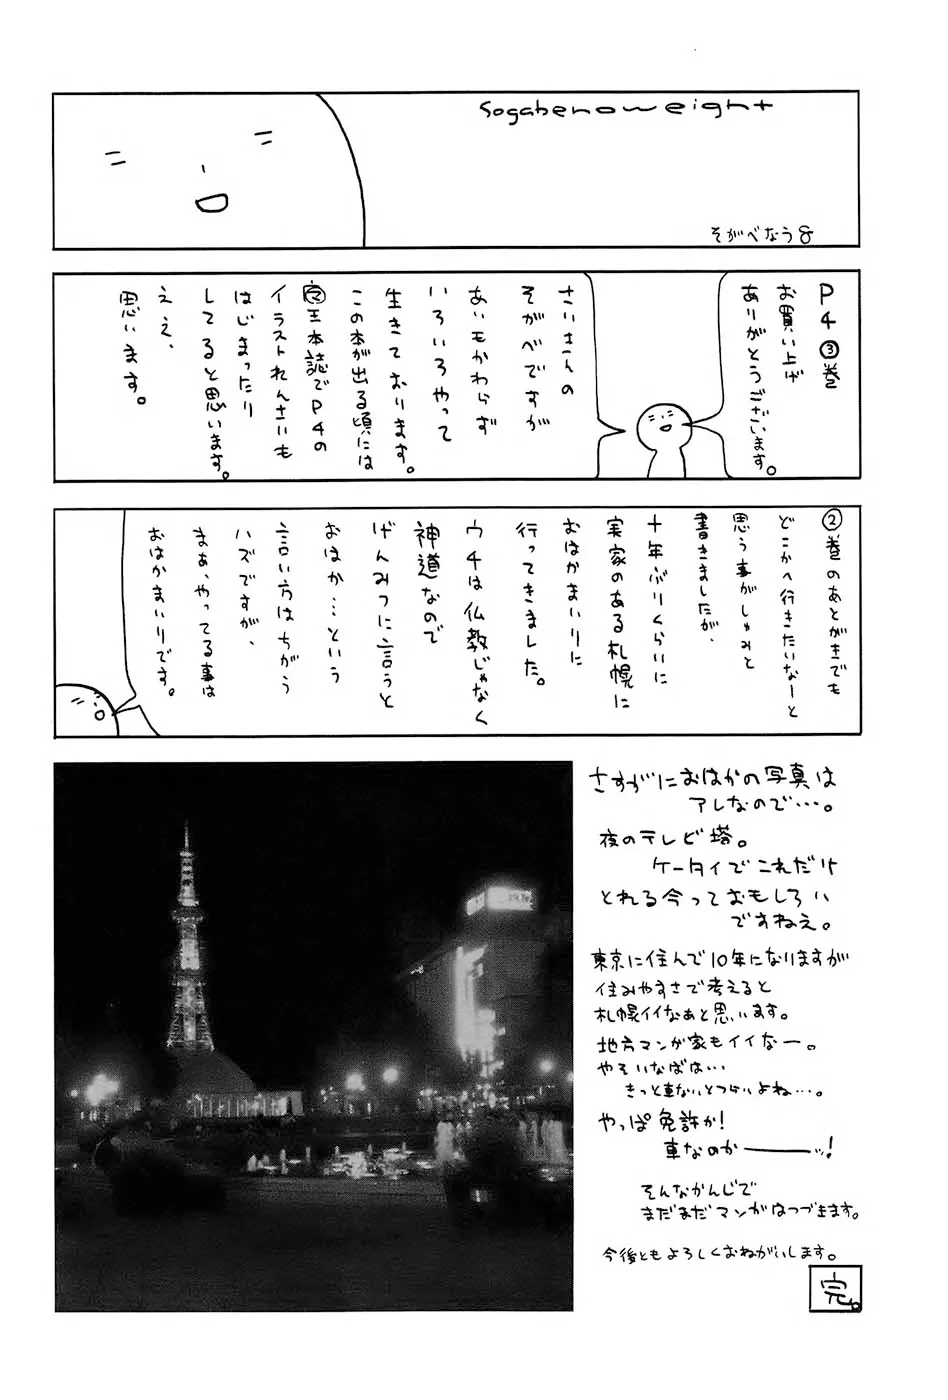 sogabenoweight
そがべなう8
P4③巻
お買い上げ
ありがとうございます。
さいきんの
そがべですが
あいもかわらず
いろいろやって
生きております。
この本が出る頃には
マ王本誌でP4の
イラストれんさいも
はじまったり
してると思います。
ええ、
思います。
②巻のあとがきでも
どこかへ行きたいなーと
思う事がしゅみと
書きましたが、
十年ぶりくらいに
実家のある札幌に
おはかまいりに
行ってきました。
ウチは仏教じゃなく
神道なので
げんみつに言うと
おはか…という
言い方はちがう
ハズですが、
まぁ、やってる事は
おはかまいりです。
さすがにおはかの写真は
アレなので…。
夜のテレビ塔。
ケータイでこれだけ
とれる今っておもしろい
ですねえ。
東京に住んで10年になりますが
住みやすさで考えると
札幌イイなぁと思います。
地方マンガ家もイイなー。
やそいなばは…
きっと車ないとつらいよね…。
やっぱ免許か!
車なのか――ッ!
そんなかんじで
まだまだマンガはつづきます。
今後ともよろしくおねがいします。
完。